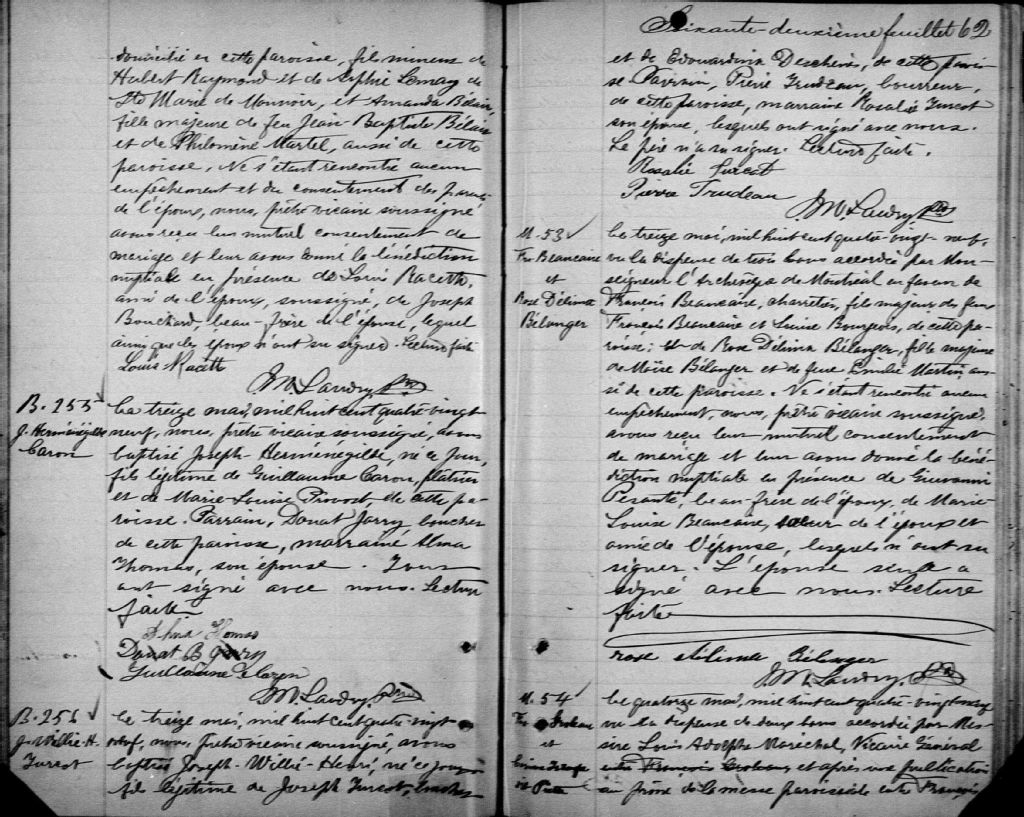 domicilié en cette paroisse, fils mineur de
Hubert Raymond et de Sophie Lemay de
Ste Marie de Monnoir, et Amanda Bélair,
fille majeure de feu Jean-Baptiste Bélair
et de Philomène Martel, aussi de cette
paroisse. Ne s'étant rencontré aucun
empêchement et du consentement des parents
de l'époux, nous, prêtre vicaire soussigné
avons reçu leur mutuel consentement de
mariage et leur avons donné la bénédiction
nuptiale en présence de Louis Racette,
ami de l'époux, soussigné, de Joseph
Bouchard, beau-frère de l'épouse, lequel
ainsi que les époux n'ont su signer. Lecture faite
Louis Racette
J.M. Landry, Ptre
B. 255
J. Herménégilde
Caron
Le treize mai, mil huit cent quatre-vingt
neuf, nous, prêtre vicaire soussigné, avons
baptisé Joseph-Herménégilde, né ce jour,
fils légitime de Guillaume Caron, plâtrier
et de Marie-Louise Provost de cette pa-
roisse. Parrain, Donat Jarry boucher
de cette paroisse, marraine Alma
Thomas, son épouse. Tous
ont signé avec nous. Lecture
faite
Thomas
Donat
Guillaume
J.M. Landry, Ptre
B. 256
J. Willie-H.
Turcot
Le treize mai, mil huit cent quatre-vingt
neuf, nous, prêtre vicaire soussigné, avons
baptisé Joseph-Willie-Henri, né ce jour
fils légitime de Joseph Turcot,
Soixante-deuxième feuillet 62
et de Edouardina Deschênes, de cette parois-
se Parrain, Pierre Trudeau, bourreur,
de cette paroisse, marraine Rosalie Turcot
son épouse, lesquels ont signé avec nous.
Le père n'a su signer. Lecture faite.
Rosalie Turcot
Pierre Trudeau
J.M. Landry, Ptre
M. 53
Frs Beaucaire
et
Rose Délima
Bélanger
Le treize mai, mil huit cent quatre-vingt-neuf,
vu la dispense de trois bans accordée par Mon-
seigneur l'Archevêque de Montréal en faveur de
François Beaucaire, charretier, fils majeur des feus
François Beaucaire et Louise Bourgeois, de cette pa-
roisse; et de Rose Délima Bélanger, fille majeure
de Moïse Bélanger et de feue Emilie Martin, aus-
si de cette paroisse. Ne s'étant rencontré aucun
empêchement, nous, prêtre vicaire soussigné,
avons reçu leur mutuel consentement
de mariage et leur avons donné la béné-
diction nuptiale en présence de Giovanni
Pesante, beau-frère de l'époux, de Marie-
Louise Beaucaire, sœur de l'époux et
amie de l'épouse, lesquels n'ont su
signer. L'épouse seule a
signé avec nous. Lecture
faite
rose délima Bélanger
J.M. Landry, Ptre
M. 54
et
Le quatorze mai, mil huit cent quatre-vingt-neuf
vu la dispense de deux bans accordée par Mes-
sire Louis Adolphe Maréchal, Vicaire Général
entre François et après une publication
au prône de la messe paroissiale entre François